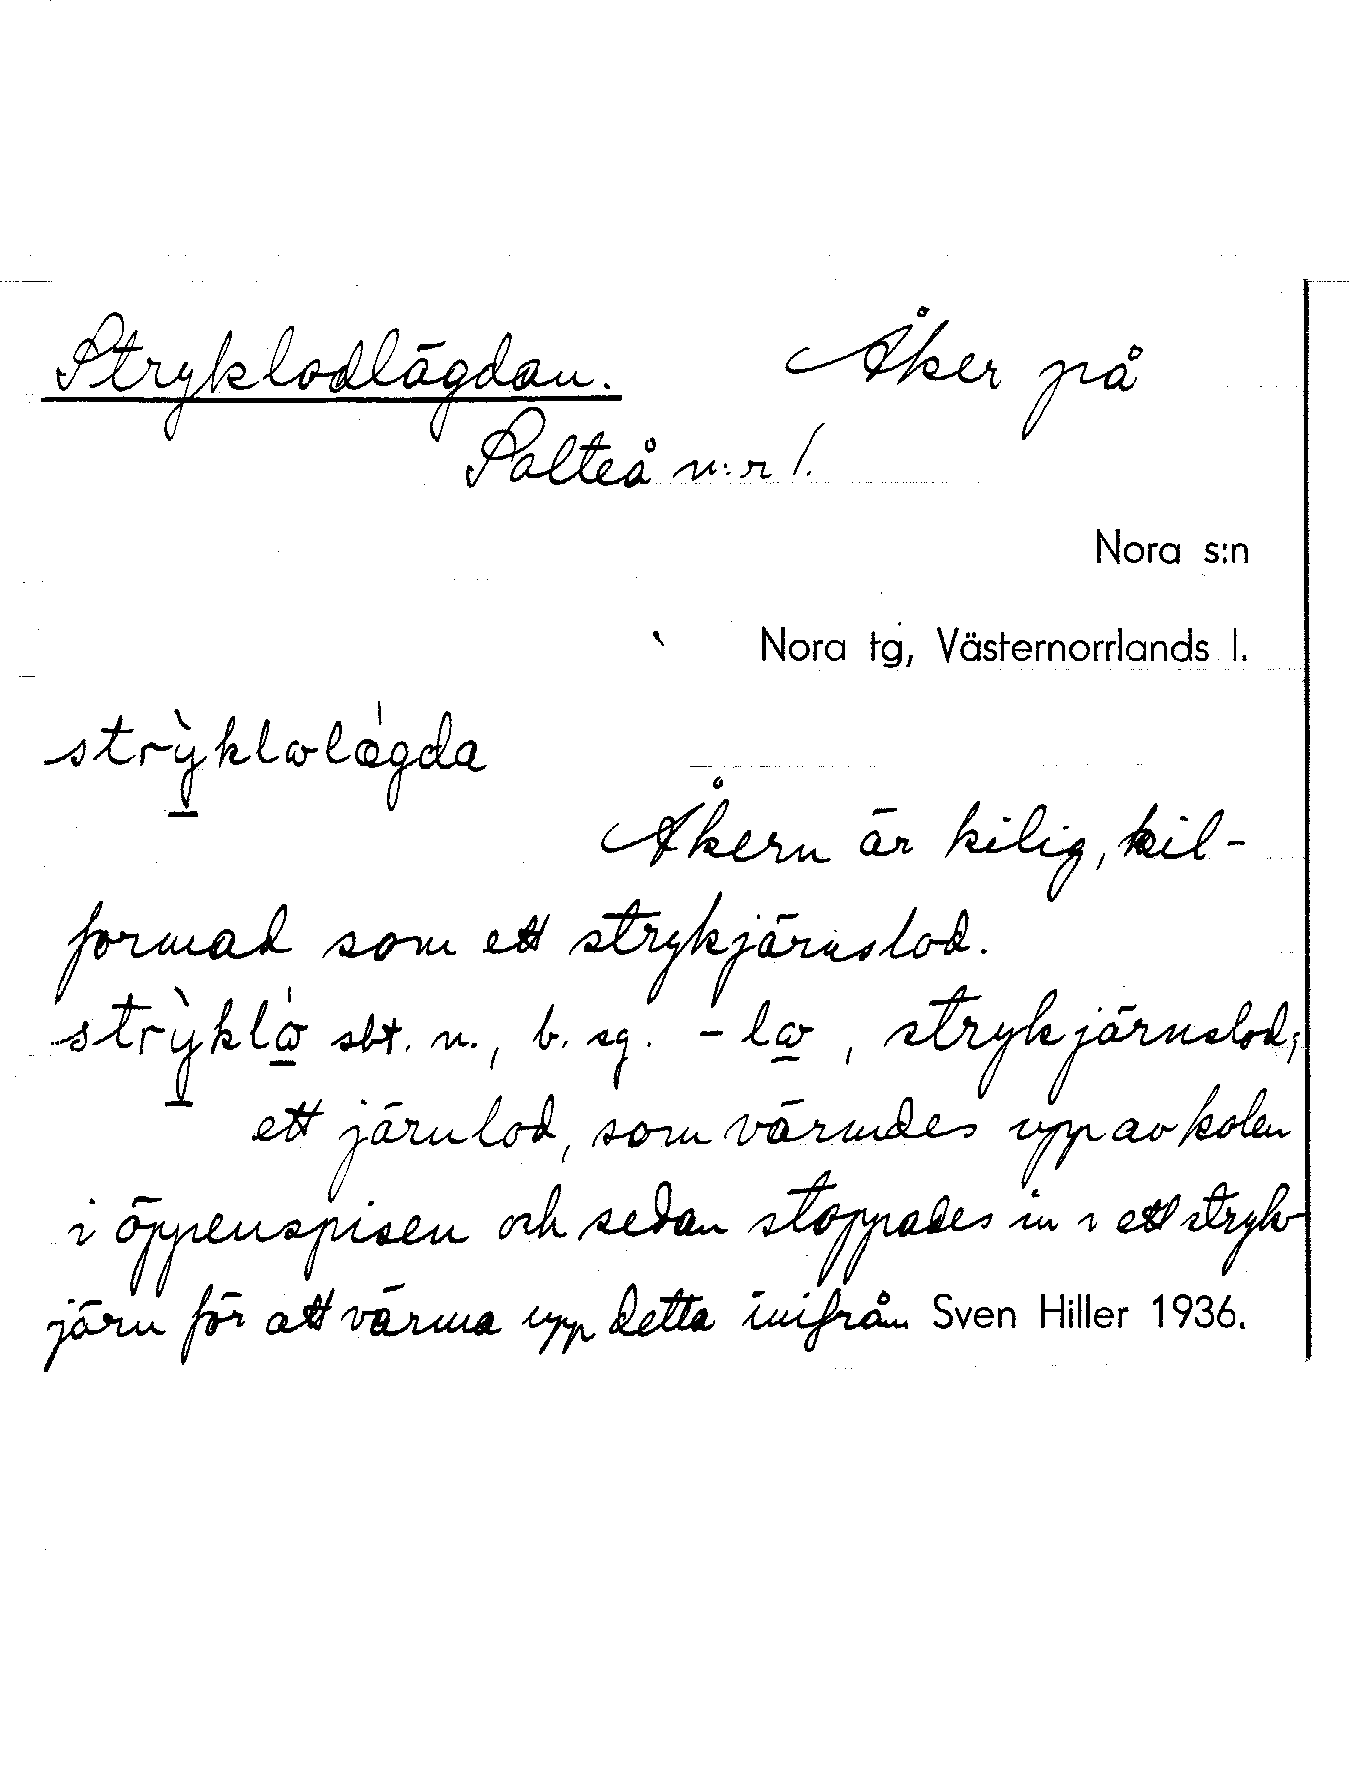 Stryklodlägdan. Åker på
Salteå n:r 1.
Nora s:n
Nora tg, Västernorrlands l.
strỳklωlǽgda
Åkern är kilig, kil-
formad som ett strykjärnslod.
strỳklώ sbt. n., b. sg. -lω, strykjärnslod;
ett järnlod, som värmdes upp av kolen
i öppenspisen och sedan stoppades in i ett stryk-
järn för att värma upp detta inifrån. Sven Hiller 1936.